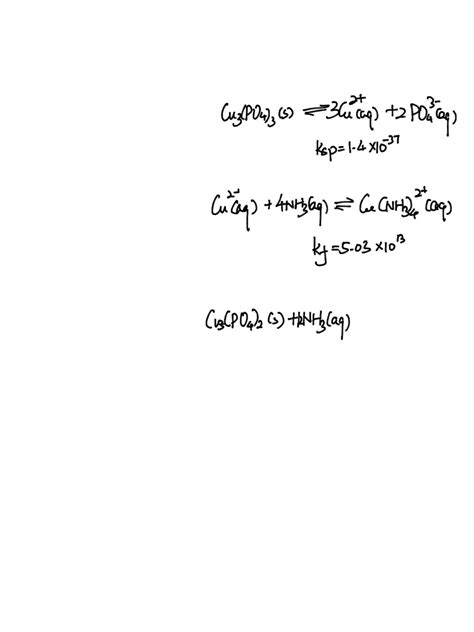 Cu₃(PO₄)₃(s) ⇌ 3Cu²⁺(aq) + 2PO₄³⁻(aq)
Ksp = 1.4 × 10⁻³⁷
Cu²⁺(aq) + 4NH₃(aq) ⇌ Cu(NH₃)₄²⁺(aq)
Kf = 5.03 × 10¹³
Cu₃(PO₄)₂(s) + 12NH₃(aq)